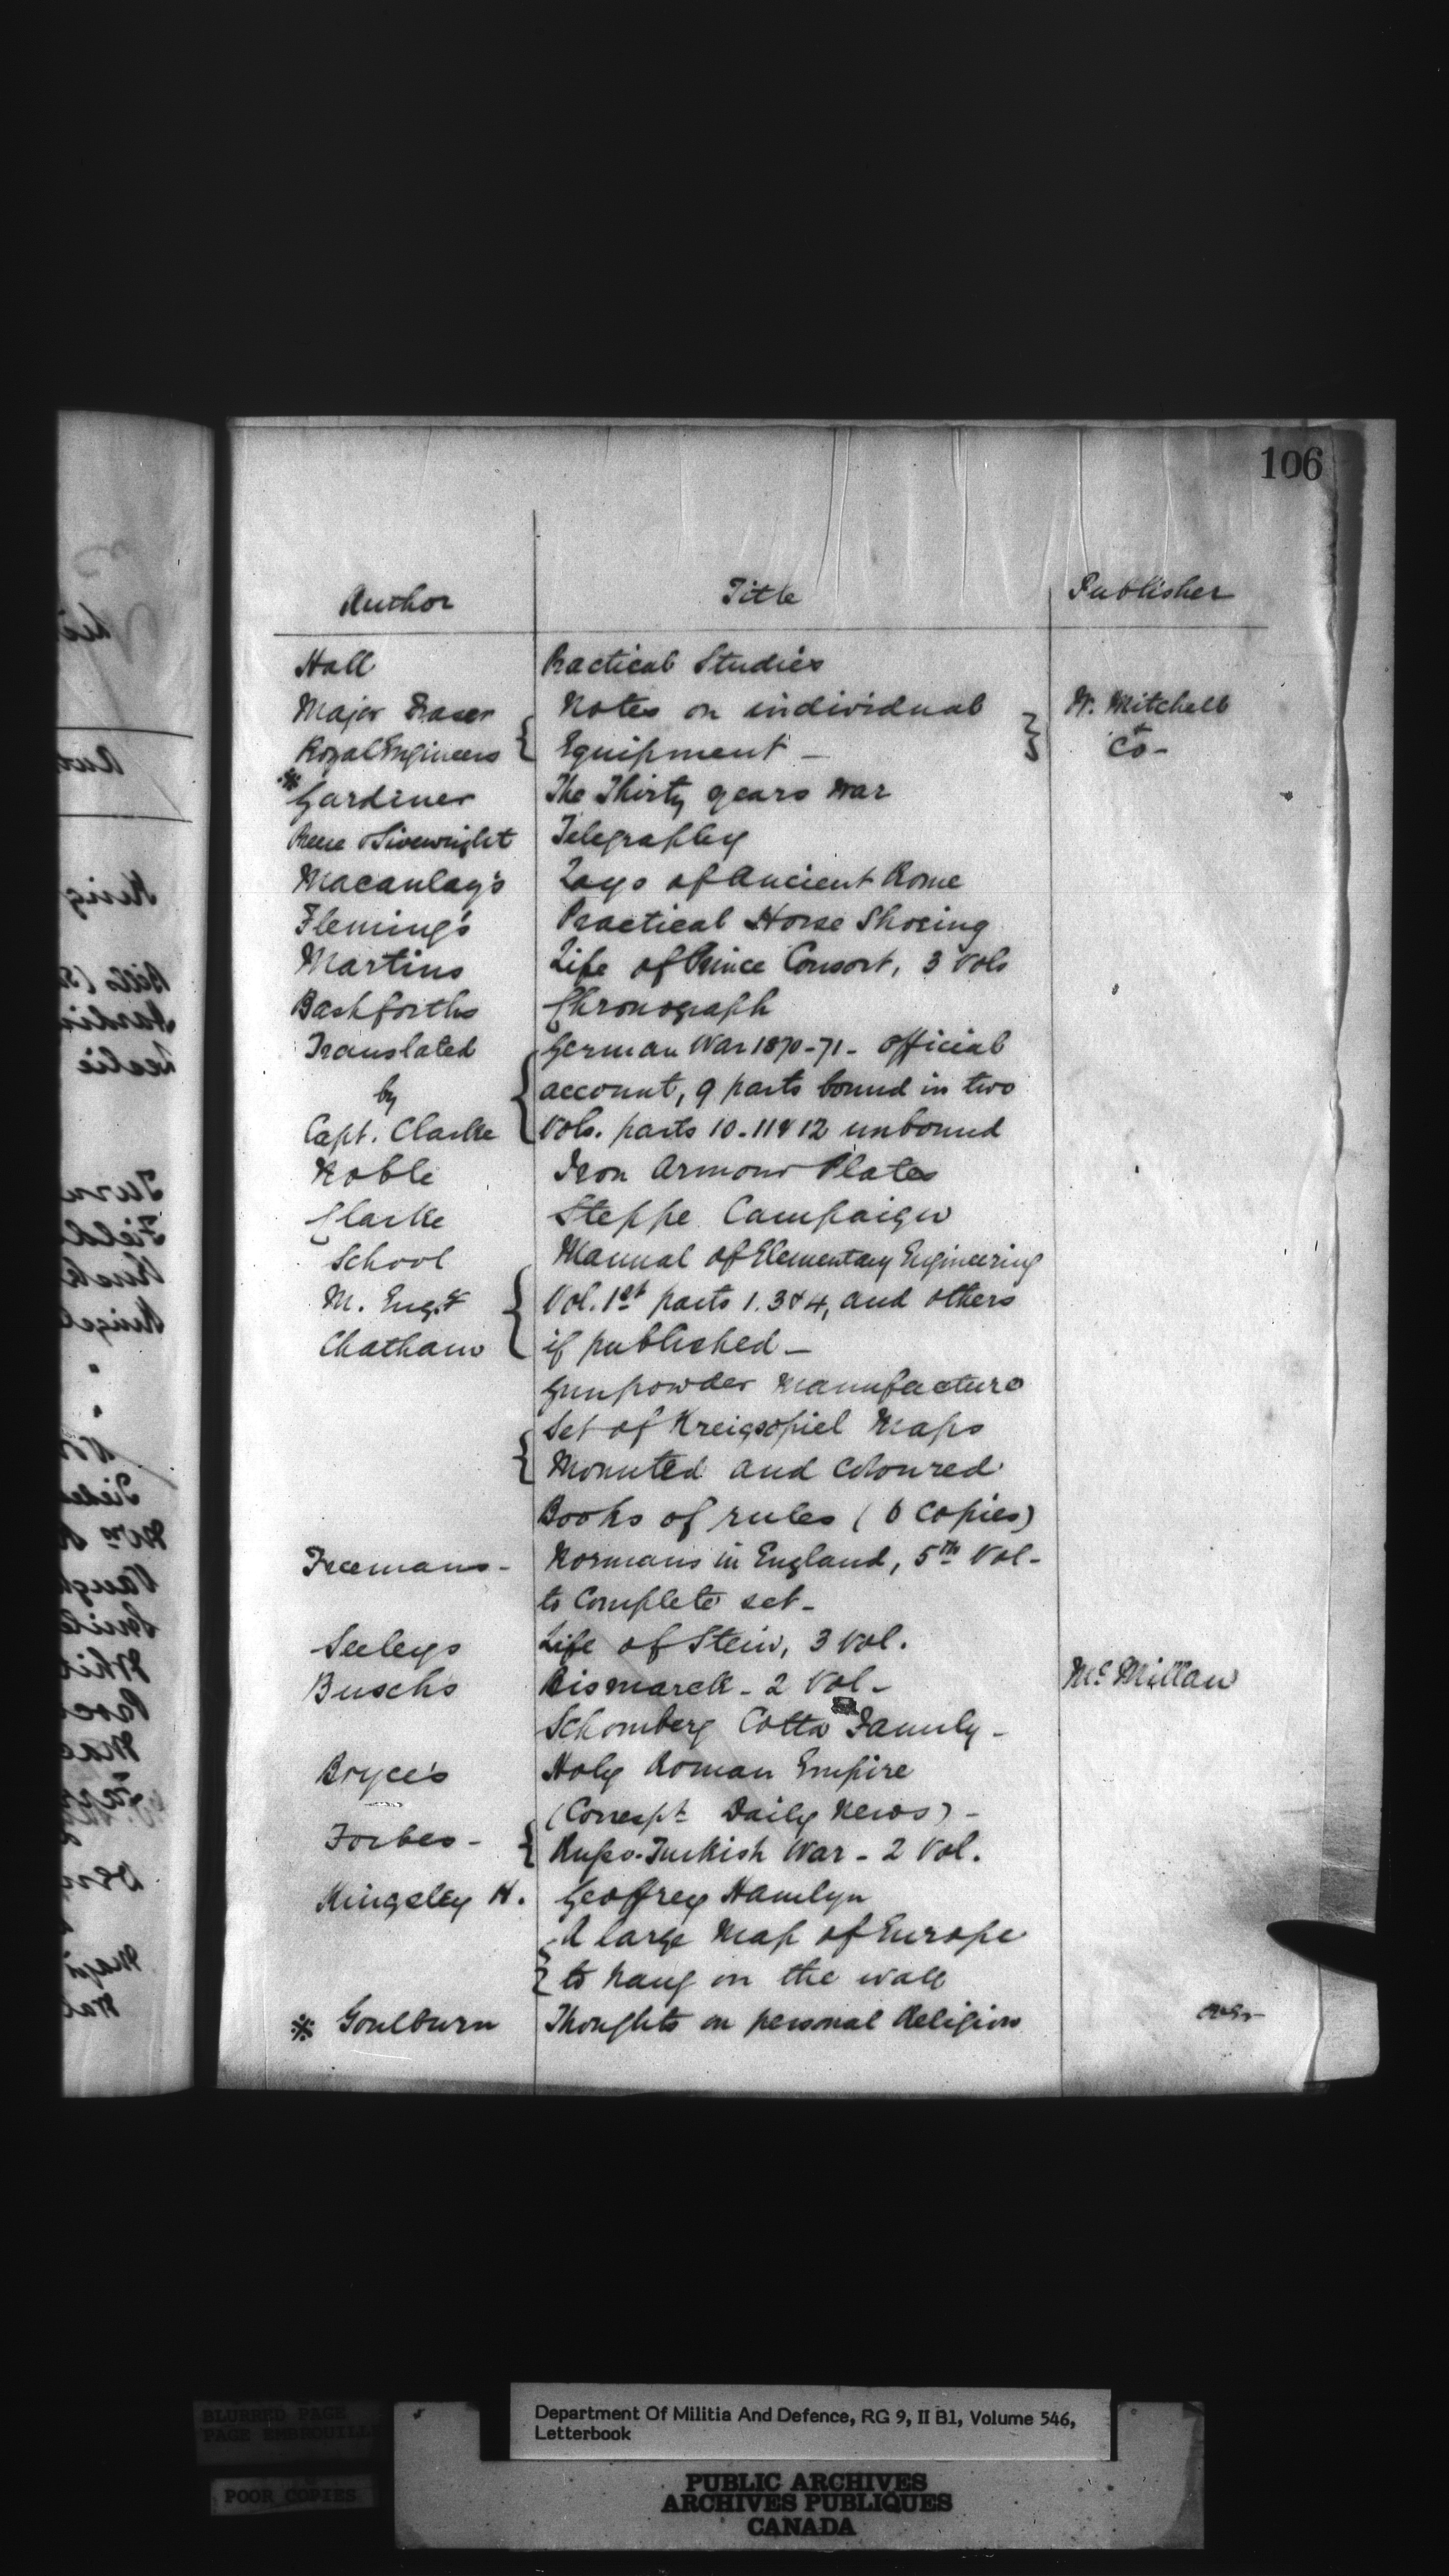 106
Author Title Publisher
Hall Practical Studies
Major Fraser { Notes on individual } W. Mitchell
Royal Engineers { Equipment - } & Co-
※ Gardiner The Thirty years War
Preece & Sivewright Telegraphy
Macaulay's Lays of Ancient Rome
Fleming's Practical Horse Shoeing
Martins Life of Prince Consort, 3 Vols
Bashforths Chronograph
Translated German War 1870-71- official
by { account, 9 parts bound in two
Capt. Clarke Vols. parts 10-11 & 12 unbound
Noble Iron Armour Plates
Clarke Steppe Campaign
School Manual of Elementary Engineering
M. Eng.g { Vol. 1st parts 1. 3 & 4, and others
Chatham if published -
Gunpowder Manufacture
{ Set of Kreigsspiel Maps
Mounted and Coloured
Books of rules (6 Copies)
Freemans - Normans in England, 5th Vol-
to Complete set -
Seeleys Life of Stein, 3 Vol.
Busch's Bismarck - 2 Vol - Mc Millan
Schomberg Cotta Family -
Bryce's Holy Roman Empire
(Correspt Daily News) -
Forbes - { Russo-Turkish War - 2 Vol.
Kingsley H. Geoffrey Hamlyn
{ A large Map of Europe
to hang on the wall
※ Goulburn Thoughts on personal Religion
BLURRED PAGE
PAGE EMBROUILLÉE
POOR COPIES
Department Of Militia And Defence, RG 9, II B1, Volume 546,
Letterbook
PUBLIC ARCHIVES
ARCHIVES PUBLIQUES
CANADA